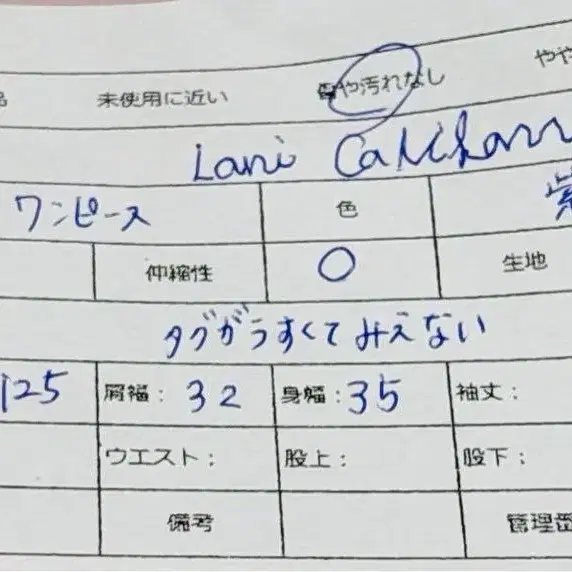 品 未使用に近い 傷や汚れなし やや
Lani
ワンピース 色 紫
伸縮性 ○ 生地
タグがうすくてみえない
125 肩幅： 32 身幅： 35 袖丈：
ウエスト： 股上： 股下：
備考 管理番